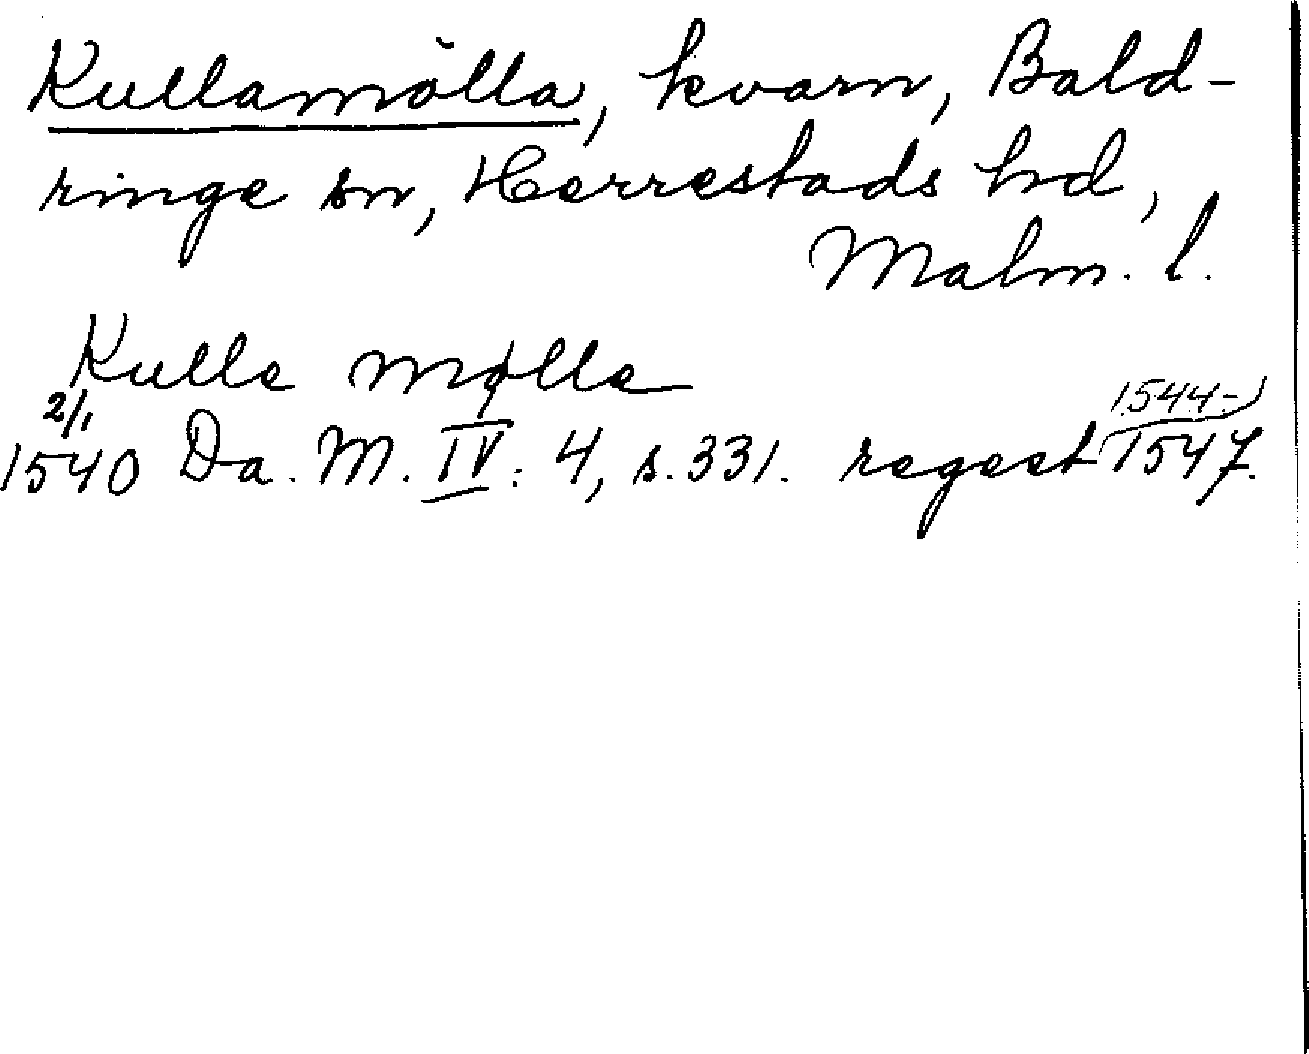 Kullamölla, kvarn, Bald-
ringe sn, Herrestads hd,
Malm. l.
Kulle mølle
2/1
1540 Da. M. IV: 4, s. 331. regest 1544-1547.